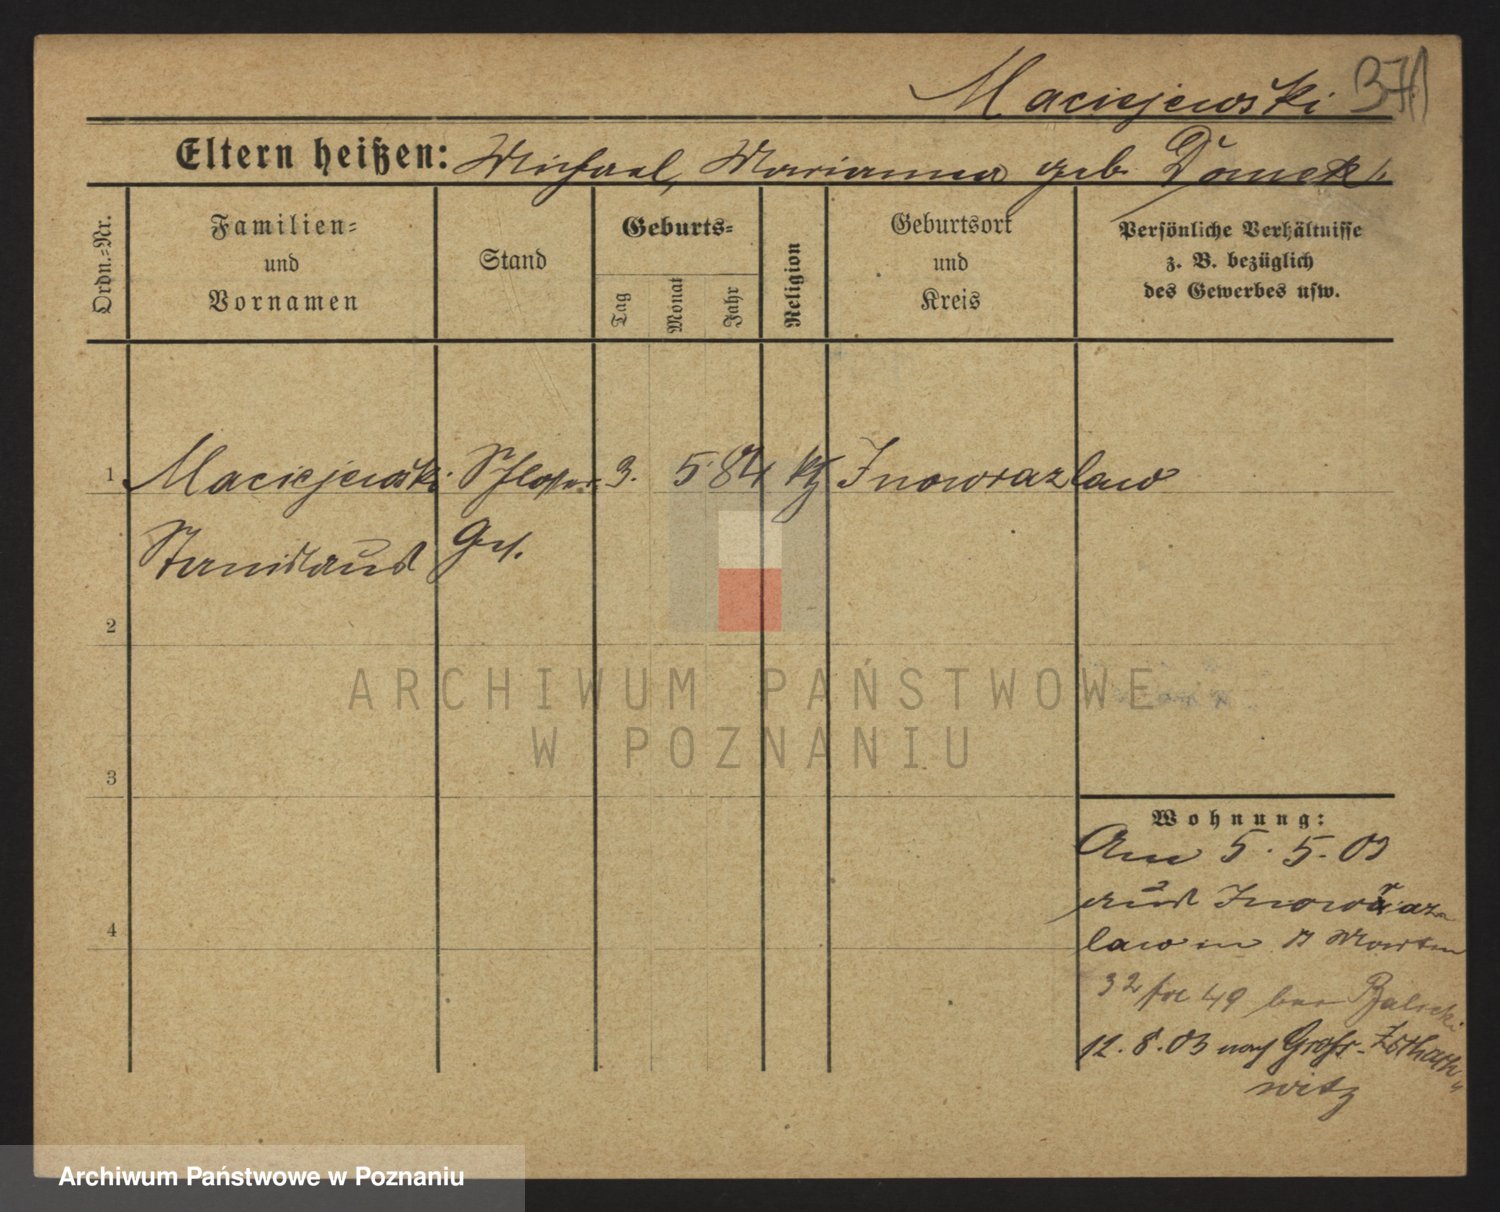 Maciejewski 371
Eltern heißen: Michael, Marianna geb. Domek
Ordn.=Nr.
Familien=
und
Vornamen
Stand
Geburts=
Tag
Monat
Jahr
Religion
Geburtsort
und
Kreis
Persönliche Verhältnisse
z. B. bezüglich
des Gewerbes usw.
1 Maciejewski Schlosser 3. 5. 84 kth Inowrazlaw
Stanislaus Ges.
2
ARCHIWUM PAŃSTWOWE
W POZNANIU
3
Wohnung:
Am 5. 5. 03
aus Inowraz
law in St Martin
32 49 bei Balicki
12. 8. 03 nach Groß-Zschach
witz
4
Archiwum Państwowe w Poznaniu